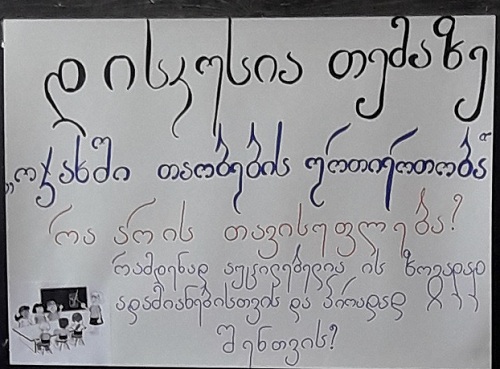 დისკუსია თემაზე
„ოჯახში თაობების ურთიერთობა"
რა არის თავისუფლება?
რამდენად აუცილებელია ის ზოგადად
ადამიანებისთვის და პირადად
შენთვის?